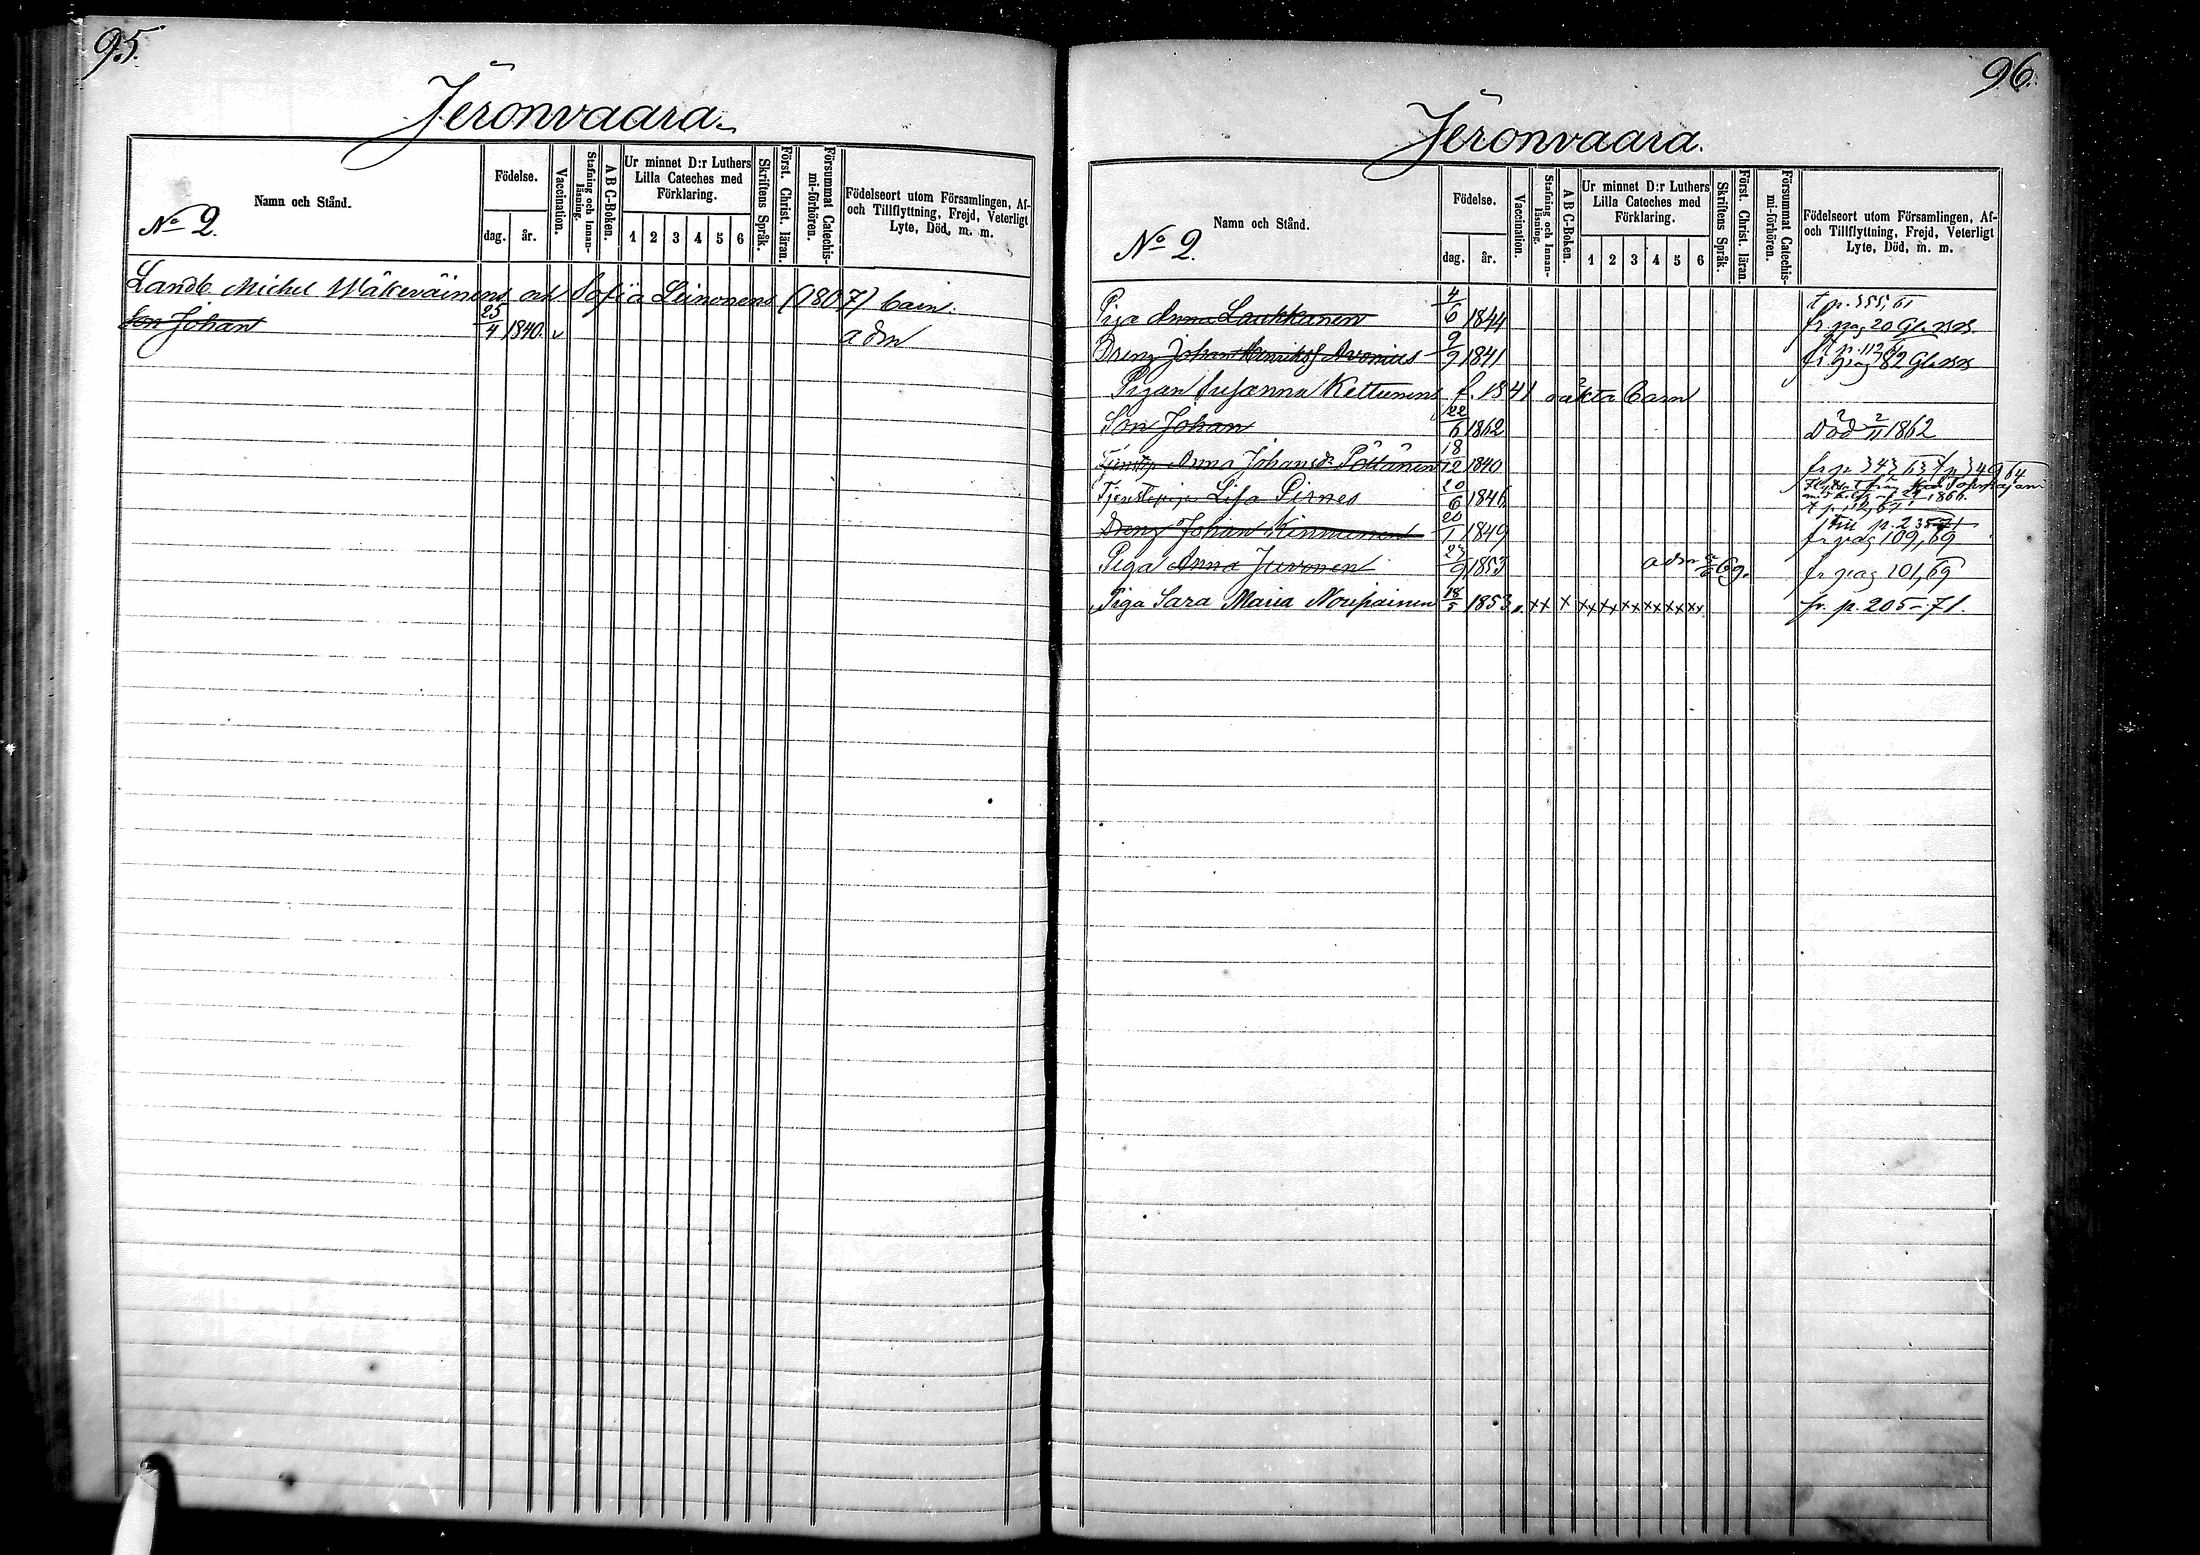 95.
Jeronvaara.
Namn och Stånd.
No 2.
Födelse.
dag. år.
Vaccination.
Stafning och Innanläsning.
A B C-Boken.
Ur minnet D:r Luthers Lilla Cateches med Förklaring.
1 2 3 4 5 6
Skriftens Språk.
Först. Christ. läran.
Försummat Catechismi-förhören.
Födelseort utom Församlingen, Af- och Tillflyttning, Frejd, Veterligt Lyte, Död, m. m.
Landb Michel Wäkeväinens och Sofia Leinonens (1807) barn.
Son Johan 25/4 1840. v adm
96.
Jeronvaara.
Namn och Stånd.
No 2.
Födelse.
dag. år.
Vaccination.
Stafning och Innanläsning.
A B C-Boken.
Ur minnet D:r Luthers Lilla Cateches med Förklaring.
1 2 3 4 5 6
Skriftens Språk.
Först. Christ. läran.
Försummat Catechismi-förhören.
Födelseort utom Församlingen, Af- och Tillflyttning, Frejd, Veterligt Lyte, Död, m. m.
t p. 355, 61
Piga Anna Laukkanen 4/6 1844 fr pag 20
Dreng Johan Henriks Avonius 9/9 1841 fr pag 82
Pigan Susanna Kettunens f. 1841 oäkta barn
Son Johan 22/6 1862 Död 2/11 1862
Anna Johansdr Pöllänen 18/12 1840 fr p 343 63 t p 349 64
Tjenstepigan Lisa Pirnes 20/6 1846
t p 112, 67
Till p. 235-71
Dreng Johan Kinnunen 20/1 1849 fr pag 109, 69
Piga Anna Juvonen 27/9 1853 adm 69. fr pag 101, 69
Piga Sara Maria Nousiainen 18/5 1853 . xx x xx xx xx xx xx xx fr. p. 205-71.